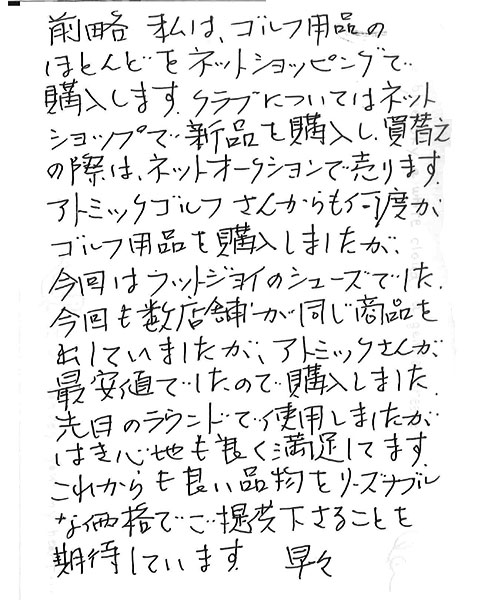 前略 私は、ゴルフ用品の
ほとんどをネットショッピングで
購入します。クラブについてはネット
ショップで新品を購入し、買替え
の際は、ネットオークションで売ります。
アトミックゴルフさんからも何度か
ゴルフ用品を購入しましたが、
今回はフットジョイのシューズでした。
今回も数店舗が同じ商品を
出していましたが、アトミックさんが
最安値でしたので購入しました。
先日のラウンドで使用しましたが
はき心地も良く満足してます
これからも良い品物をリーズナブル
な価格でご提供下さることを
期待しています。 早々